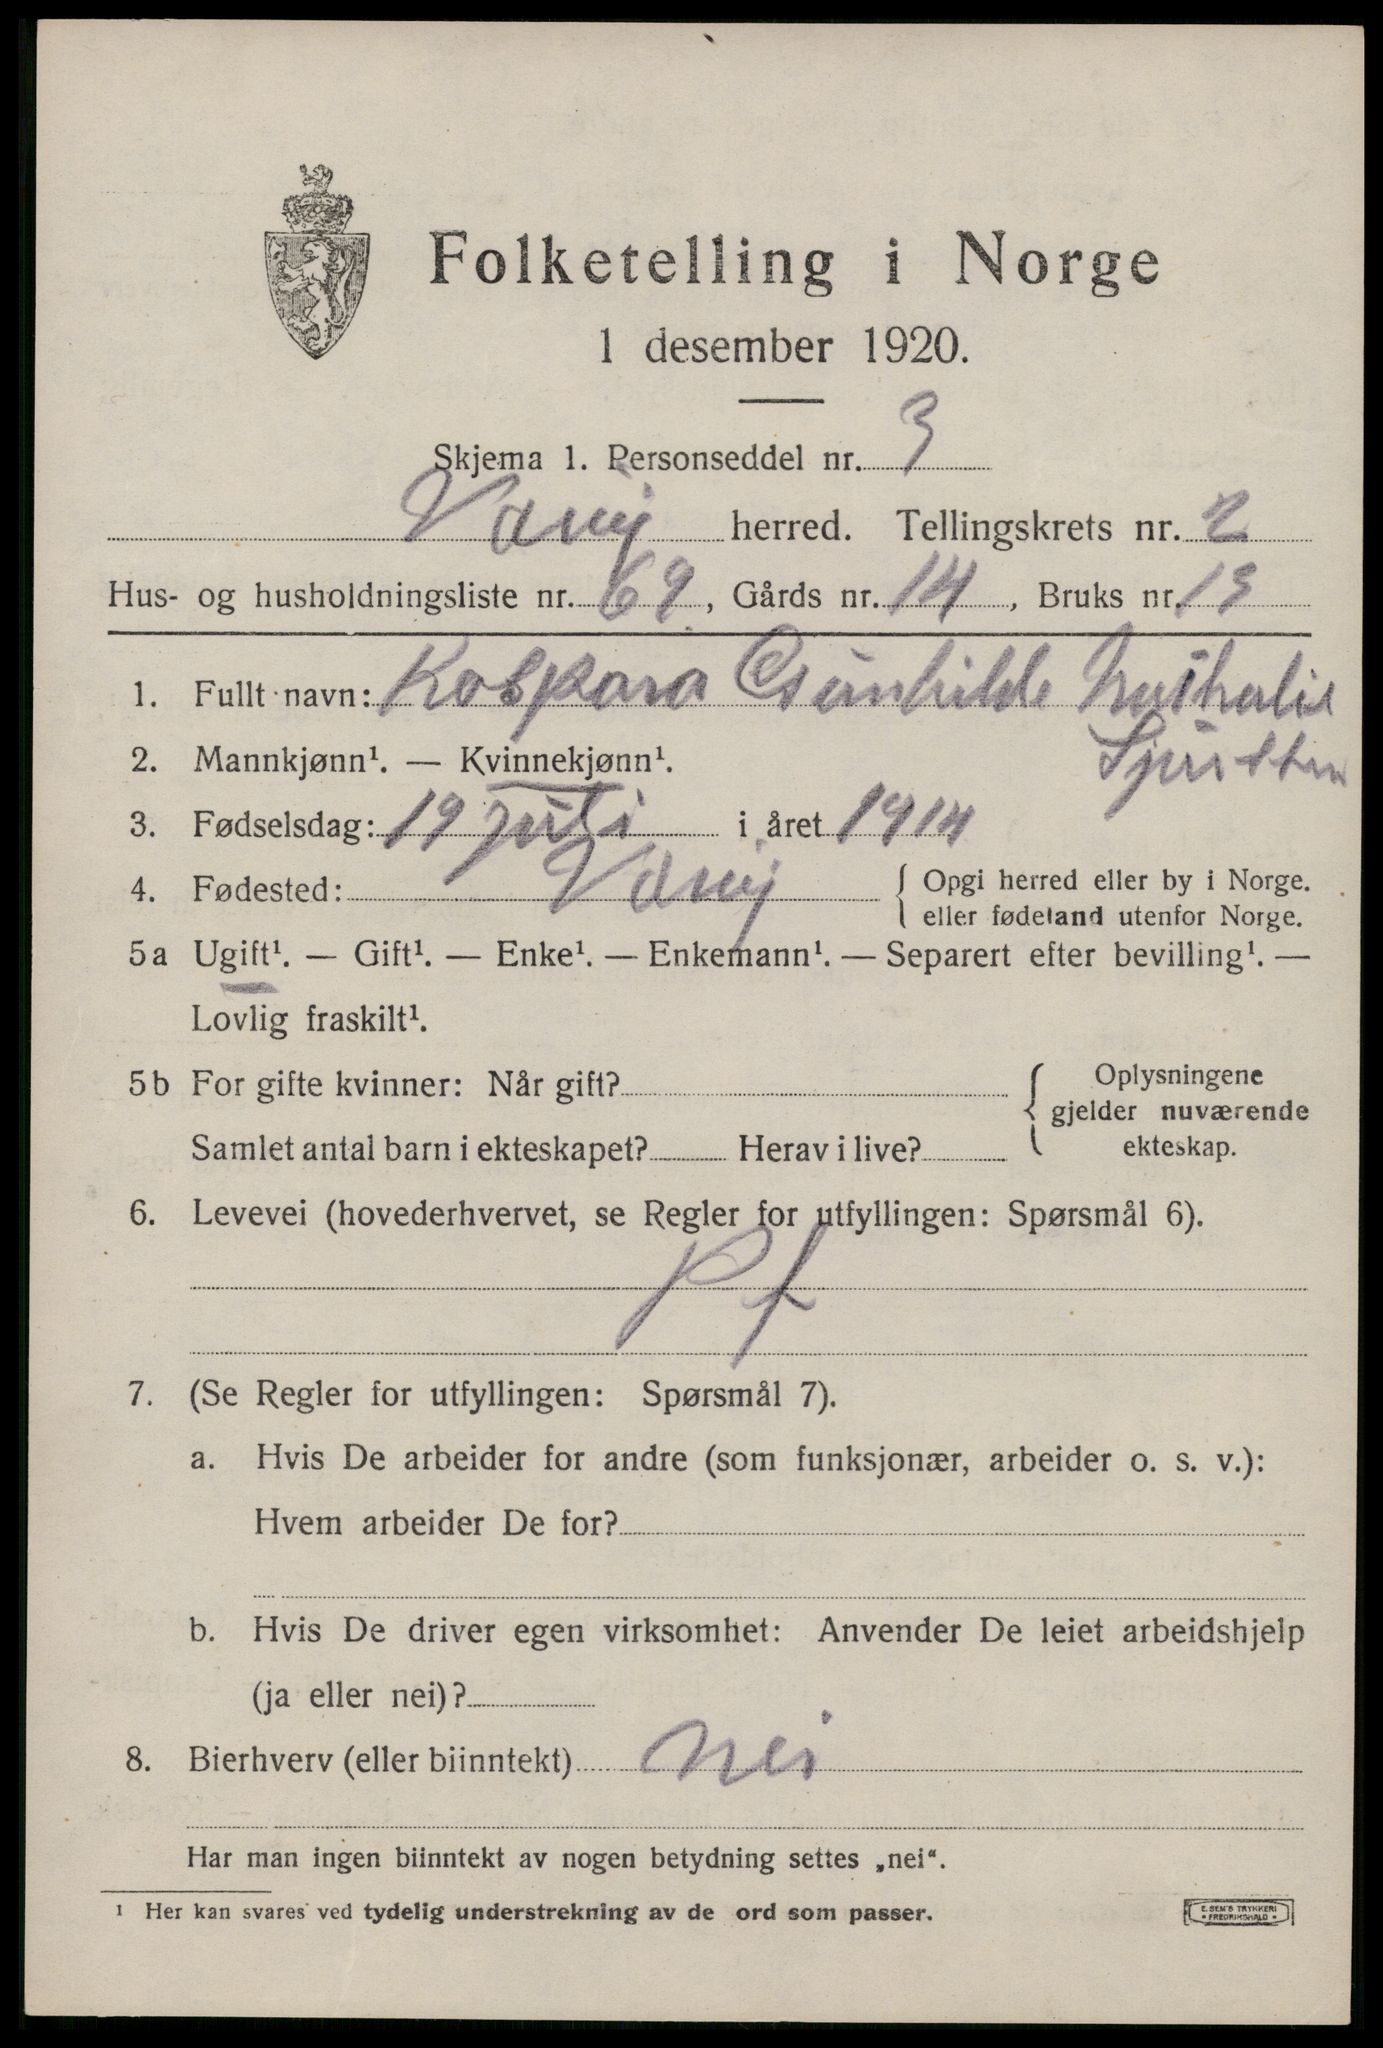 Folketelling i Norge
1 desember 1920.
Skjema 1. Personseddel nr. 3
herred. Tellingskrets nr. 2
Hus- og husholdningsliste nr. 69, Gårds nr. 14, Bruks nr. 13
1. Fullt navn: Kaspara Gunhilde Nathalie
2. Mannkjønn¹. — Kvinnekjønn¹.
3. Fødselsdag: 19 juli i året 1914
4. Fødested: { Opgi herred eller by i Norge.
eller fødeland utenfor Norge.
5a Ugift¹. — Gift¹. — Enke¹. — Enkemann¹. — Separert efter bevilling¹. —
Lovlig fraskilt¹.
5b For gifte kvinner: Når gift? { Oplysningene
gjelder nuværende
Samlet antal barn i ekteskapet? Herav i live? ekteskap.
6. Levevei (hovederhvervet, se Regler for utfyllingen: Spørsmål 6).
Pf
7. (Se Regler for utfyllingen: Spørsmål 7).
a. Hvis De arbeider for andre (som funksjonær, arbeider o. s. v.):
Hvem arbeider De for?
b. Hvis De driver egen virksomhet: Anvender De leiet arbeidshjelp
(ja eller nei)?
8. Bierhverv (eller biinntekt) nei
Har man ingen biinntekt av nogen betydning settes „nei“.
¹ Her kan svares ved tydelig understrekning av de ord som passer.
E. SEM'S TRYKKERI
• FREDRIKSHALD •